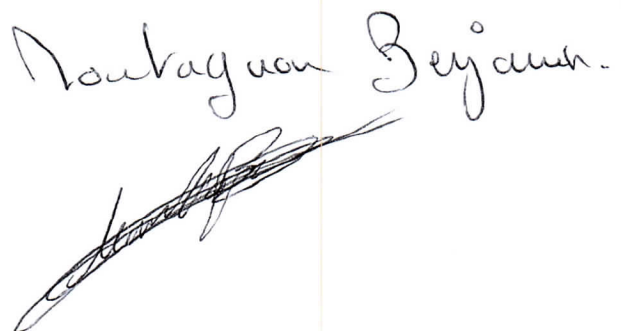 Montagnon Benjamin.